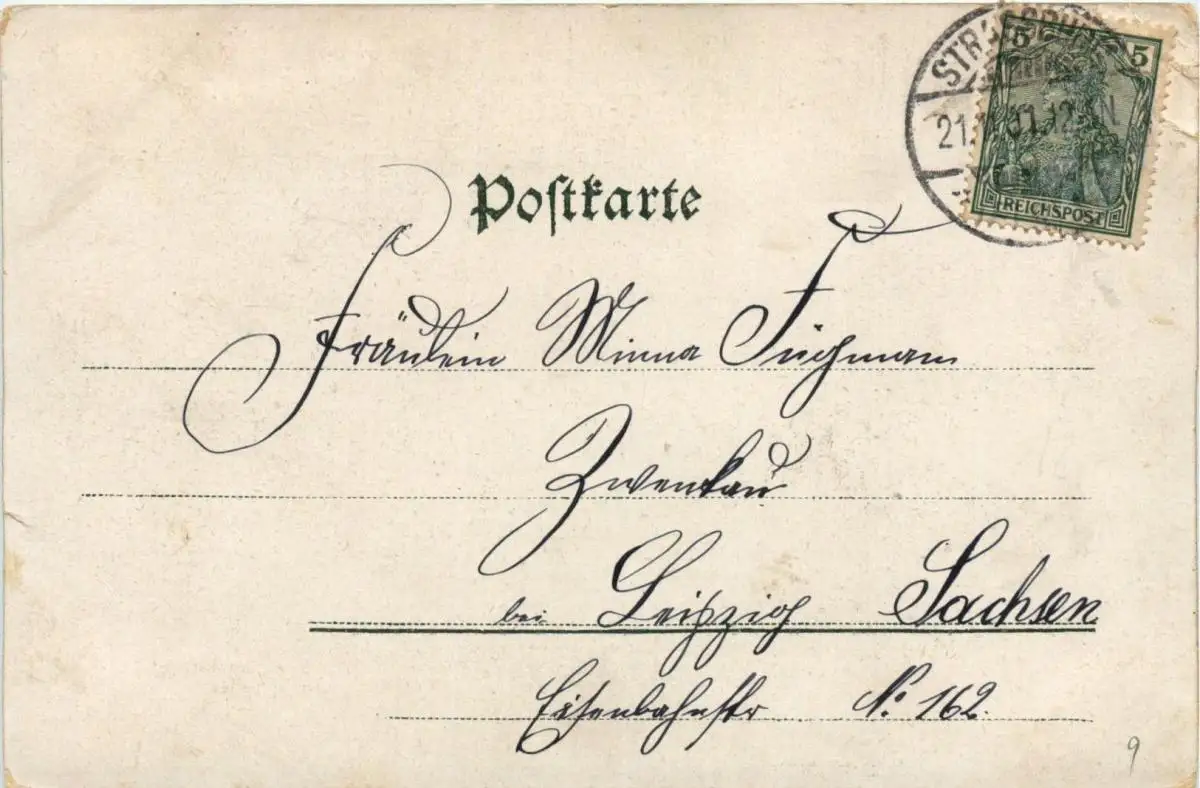 STRASSBURG
21. 01. 12
5 5
REICHSPOST
Postkarte
Fräulein Minna Füchmann
Zwenkau
bei Leipzig Sachsen
Eisenbahnstr No. 162.
9